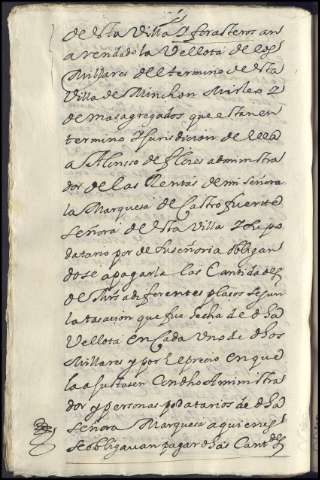 de esta Villa y forasteros an
arrendado la Vellota de los
Millares del termino de esta
Villa de
de mas agregados que estan en
termino y Juridicion de ella
a Alonso de flores administra
dor de las Rentas de mi señora
la Marquesa de Castro fuerte
señora de esta Villa y
datario por de su señoria obligan
dose a pagarla las Cantidades
de a diferentes plaços segun
la tasacion que fue fecha de dha
Vellota en Cada Uno de dhos
Millares y por el preçio en que
la ajustasen Con dho Administra
dor y personas podatarios de dha
señora Marquesa a quienes
se obligavan pagar dhas Cantdes